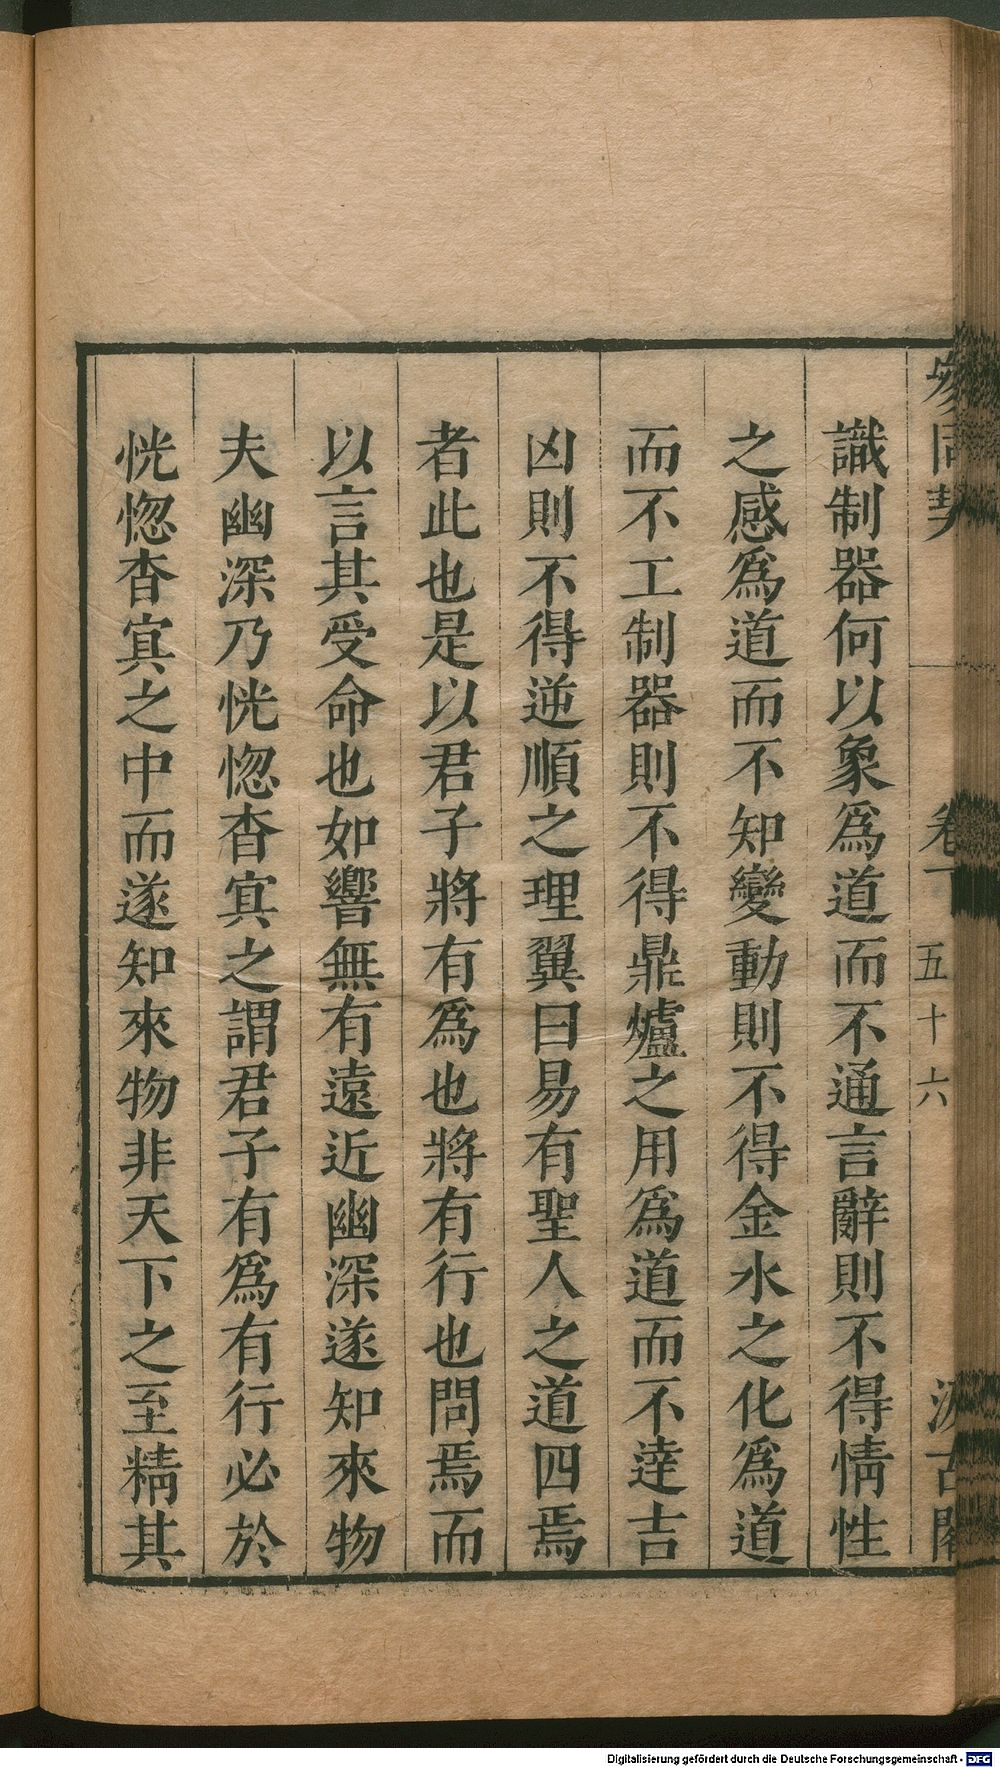 參同契 卷下 五十六 汲古閣
識制器何以象爲道而不通言辭則不得情性
之感爲道而不知變動則不得金水之化爲道
而不工制器則不得鼎爐之用爲道而不達吉
凶則不得逆順之理翼曰易有聖人之道四焉
者此也是以君子將有爲也將有行也問焉而
以言其受命也如響無有遠近幽深遂知來物
夫幽深乃恍惚杳冥之謂君子有爲有行必於
恍惚杳冥之中而遂知來物非天下之至精其
Digitalisierung gefördert durch die Deutsche Forschungsgemeinschaft - DFG